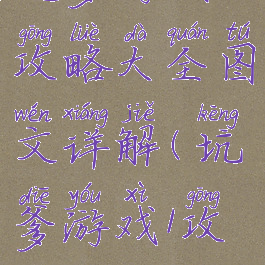 gōng lüè dà quán tú
攻略大全图
wén xiáng jiě kēng
文详解(坑
diē yóu xì gōng
爹游戏/攻